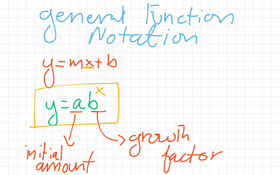 general Function
Notation
y=mx+b
y=ab^x
initial
amount
growth
factor